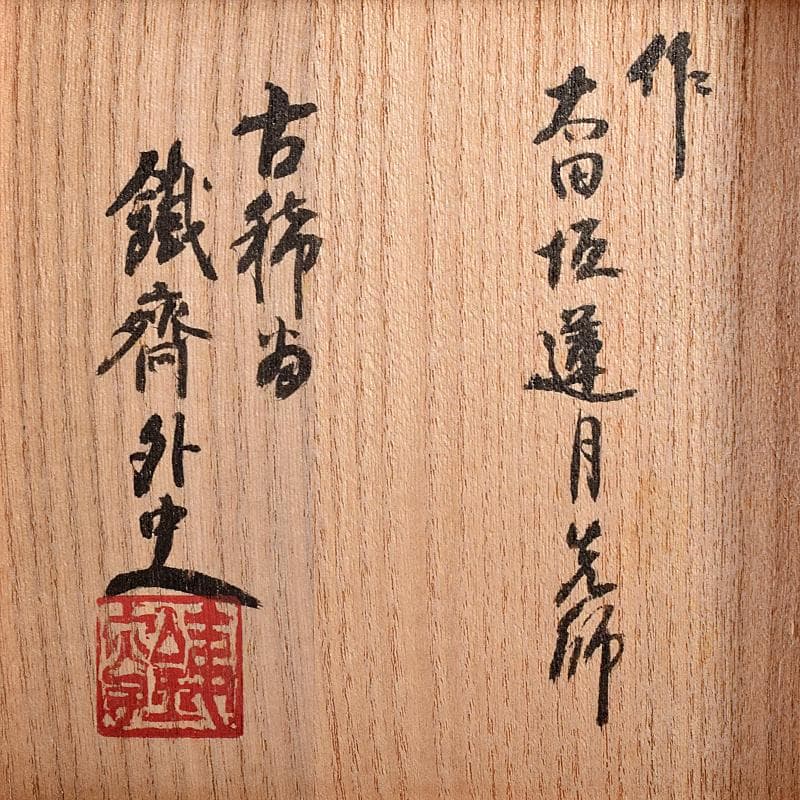 作
太田垣蓮月先師
古稀翁
鐵齊外史